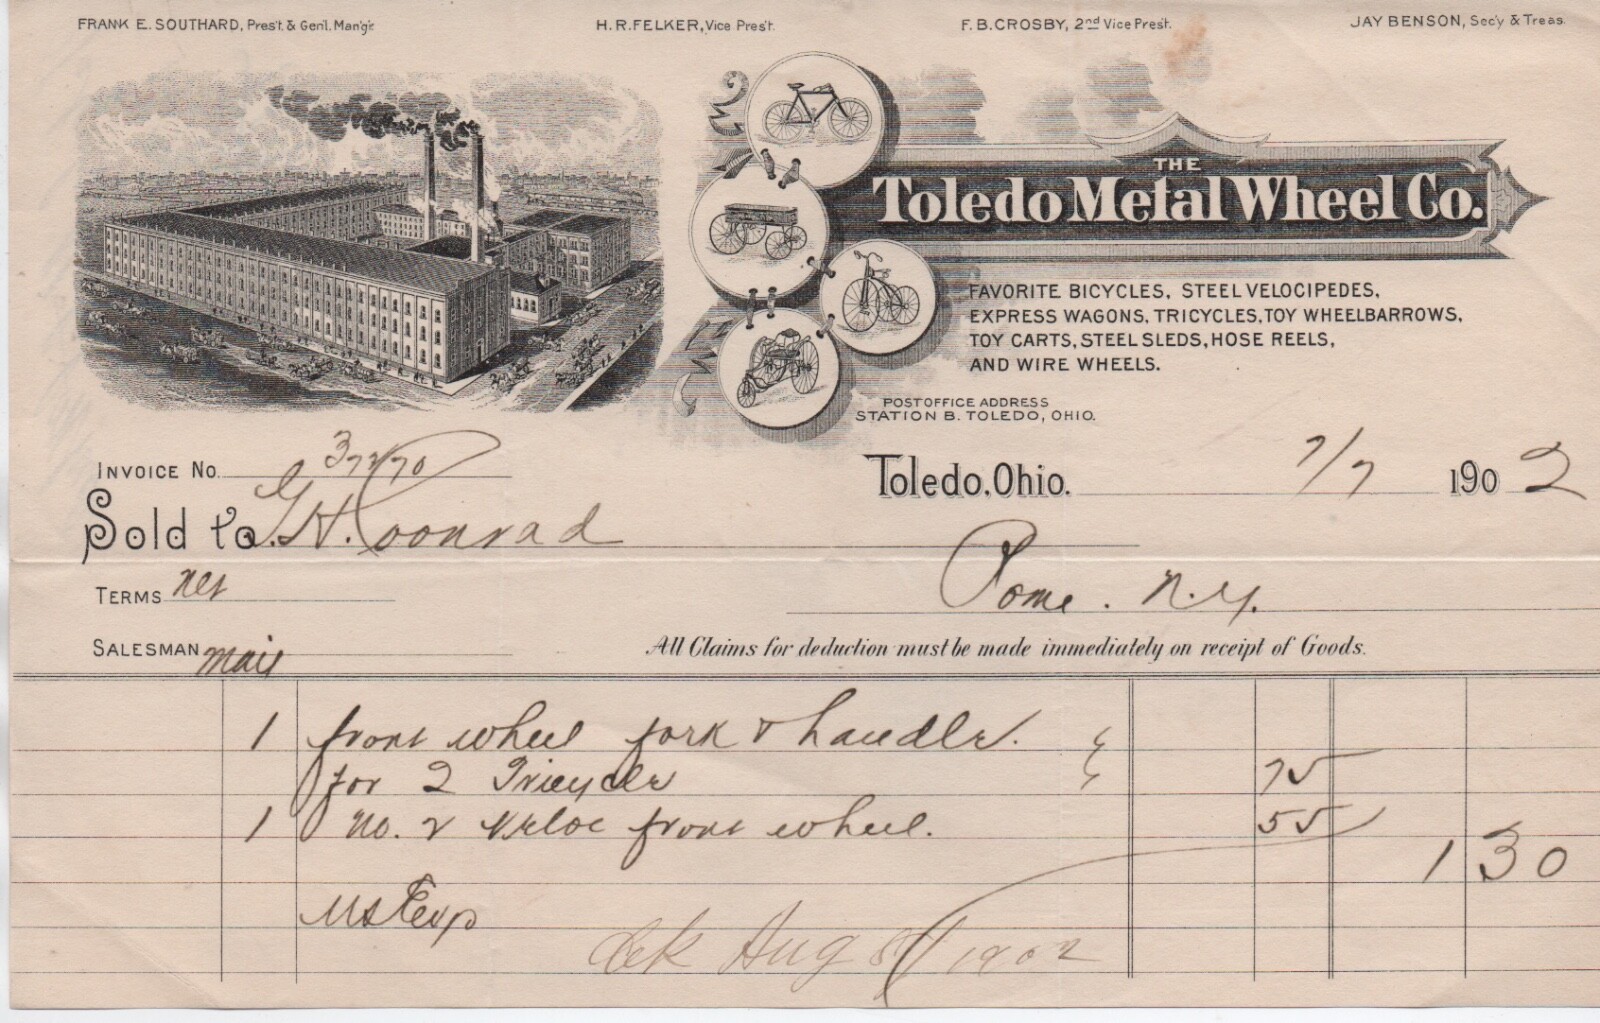 FRANK E. SOUTHARD, Pres't. & Gen'l. Mang'r.
H. R. FELKER, Vice Pres't.
F. B. CROSBY, 2nd Vice Prest.
JAY BENSON, Sec'y & Treas.
THE
Toledo Metal Wheel Co.
FAVORITE BICYCLES, STEEL VELOCIPEDES,
EXPRESS WAGONS, TRICYCLES, TOY WHEELBARROWS,
TOY CARTS, STEEL SLEDS, HOSE REELS,
AND WIRE WHEELS.
POSTOFFICE ADDRESS
STATION B. TOLEDO, OHIO.
INVOICE No.
Toledo, Ohio. 7/7 1902
Sold to G. H. Coonrad
TERMS net
Rome. N.Y.
SALESMAN mail
All Claims for deduction must be made immediately on receipt of Goods.
1 front wheel fork & handle.
for 2 Tricycle 75
1 No. 2 Veloc front wheel. 55
1 30
US Exp
Aug 8/1902